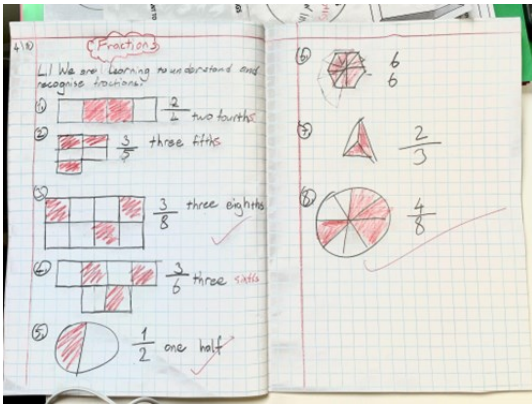 4(B)
Fractions
LI We are learning to understand and
recognise fractions.
① 2/4 two fourths
② 3/5 three fifths
③ 3/8 three eighths
④ 3/6 three sixths
⑤ 1/2 one half
⑥ 6
6
⑦ 2/3
⑧ 4/8